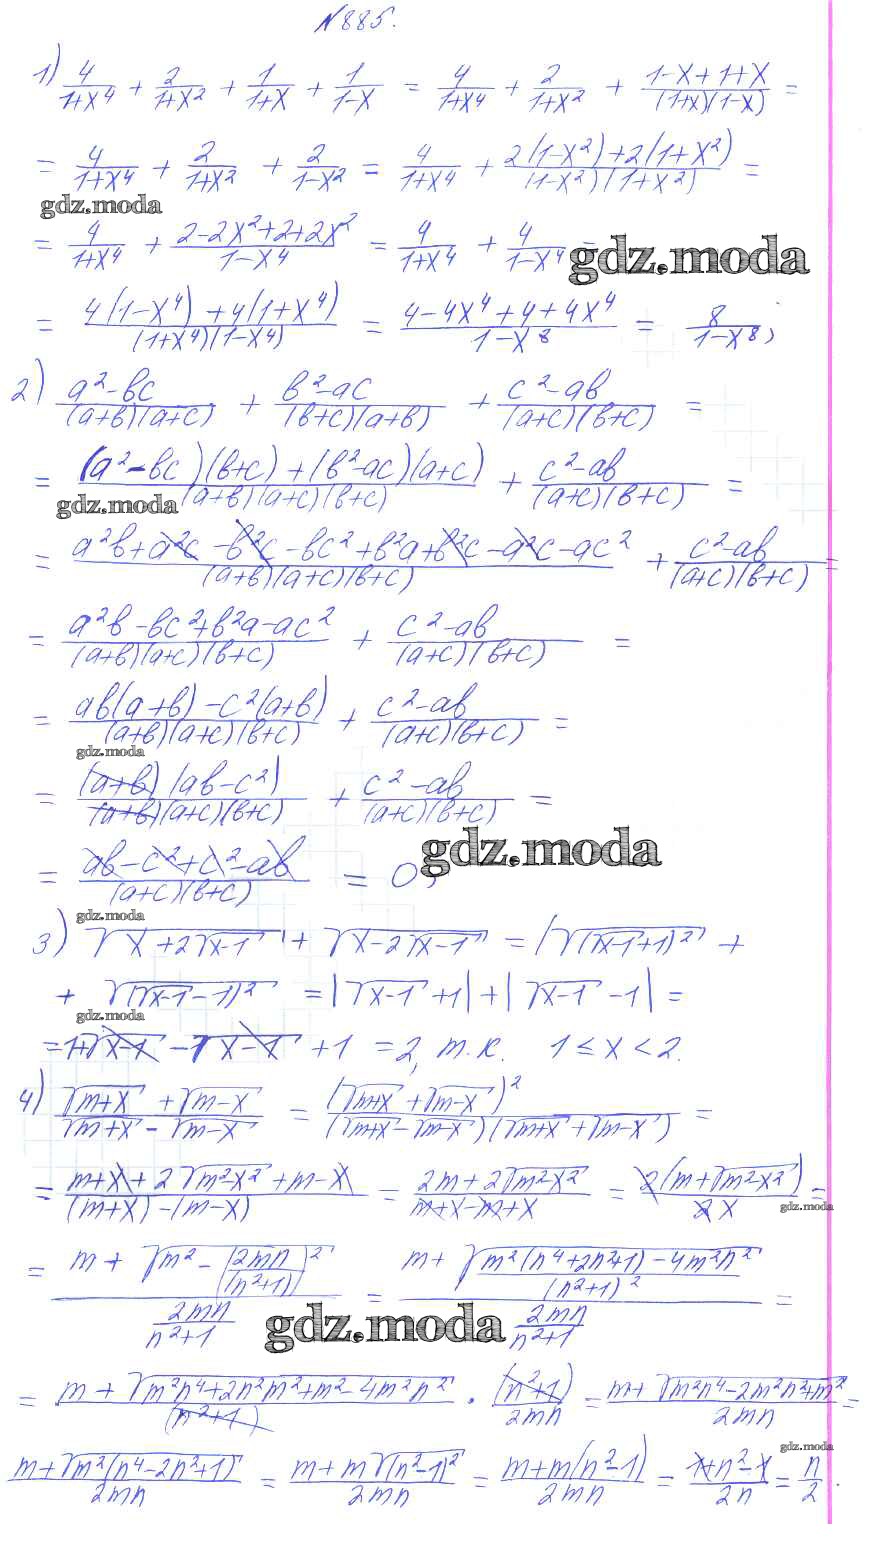 №885.
1) 4/(1+x⁴) + 2/(1+x²) + 1/(1+x) + 1/(1-x) = 4/(1+x⁴) + 2/(1+x²) + (1-x+1+x)/((1+x)(1-x)) =
= 4/(1+x⁴) + 2/(1+x²) + 2/(1-x²) = 4/(1+x⁴) + (2(1-x²)+2(1+x²))/((1-x²)(1+x²)) =
gdz.moda
= 4/(1+x⁴) + (2-2x²+2+2x²)/(1-x⁴) = 4/(1+x⁴) + 4/(1-x⁴) =
gdz.moda
= (4(1-x⁴)+4(1+x⁴))/((1+x⁴)(1-x⁴)) = (4-4x⁴+4+4x⁴)/(1-x⁸) = 8/(1-x⁸);
2) (a²-bc)/((a+b)(a+c)) + (b²-ac)/((b+c)(a+b)) + (c²-ab)/((a+c)(b+c)) =
= ((a²-bc)(b+c)+(b²-ac)(a+c))/((a+b)(a+c)(b+c)) + (c²-ab)/((a+c)(b+c)) =
gdz.moda
= (a²b+a²c-b²c-bc²+b²a+b²c-a²c-ac²)/((a+b)(a+c)(b+c)) + (c²-ab)/((a+c)(b+c)) =
= (a²b-bc²+b²a-ac²)/((a+b)(a+c)(b+c)) + (c²-ab)/((a+c)(b+c)) =
= (ab(a+b)-c²(a+b))/((a+b)(a+c)(b+c)) + (c²-ab)/((a+c)(b+c)) =
gdz.moda
= ((a+b)(ab-c²))/((a+b)(a+c)(b+c)) + (c²-ab)/((a+c)(b+c)) =
= (ab-c²+c²-ab)/((a+c)(b+c)) = 0;
gdz.moda
gdz.moda
3) √(x+2√(x-1)) + √(x-2√(x-1)) = √((√(x-1)+1)²) +
+ √((√(x-1)-1)²) = |√(x-1)+1|+|√(x-1)-1| =
gdz.moda
=1+√(x-1)-√(x-1)+1 = 2, т.к. 1≤x<2.
4) (√(m+x)+√(m-x))/(√(m+x)-√(m-x)) = (√(m+x)+√(m-x))²/((√(m+x)-√(m-x))(√(m+x)+√(m-x))) =
= (m+x+2√(m²-x²)+m-x)/((m+x)-(m-x)) = (2m+2√(m²-x²))/(m+x-m+x) = 2(m+√(m²-x²))/(2x) =
gdz.moda
= (m+√(m²-(2mn/(n²+1))²))/(2mn/(n²+1)) = (m+√((m²(n⁴+2n²+1)-4m²n²)/(n²+1)²))/(2mn/(n²+1)) =
gdz.moda
= (m+√(m²n⁴+2n²m²+m²-4m²n²))/(n²+1) · (n²+1)/(2mn) = (m+√(m²n⁴-2m²n²+m²))/(2mn) =
gdz.moda
(m+√(m²(n⁴-2n²+1)))/(2mn) = (m+m√((n²-1)²))/(2mn) = (m+m(n²-1))/(2mn) = (1+n²-1)/(2n) = n/2.